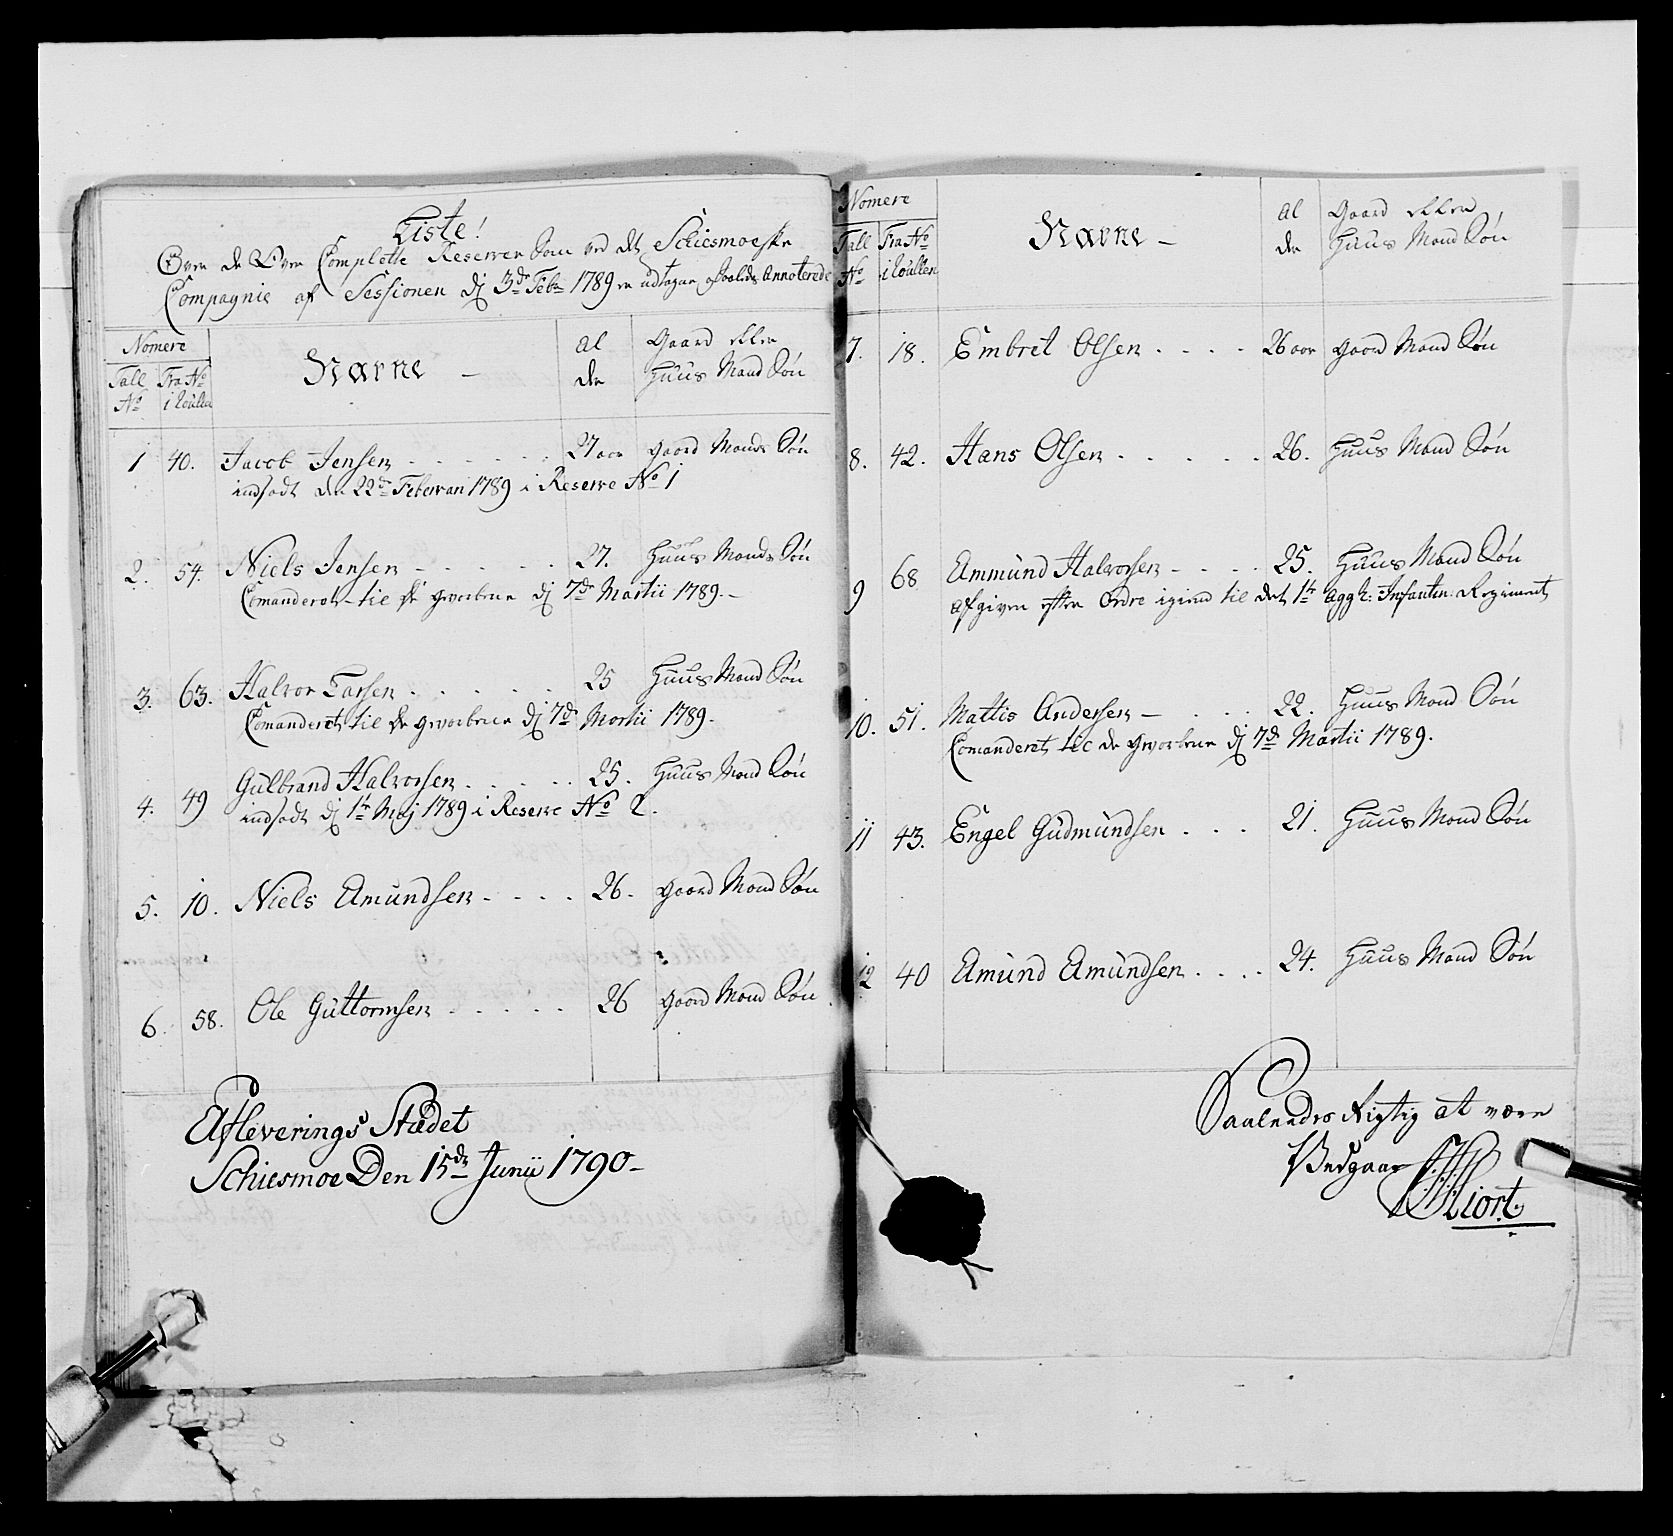 Liste!
Over de Over Complette Reserver Som ved det Schiesmoeske
Compagnie af Sessionen dj 3de Febr 1789 er udtagne Annoterede
Nomere
Tall No
Fra No i Roullen
Navne
Al der
Gaard eller Huus Mand Søn
1 40. Jacob Jensen . . . . . . 27 aar Gaard Mands Søn
indsadt den 22de Feberuari 1789 i Reserve No 1
2. 54. Niels Jensen . . . . . 27. Huus Mands Søn
Comanderet til de gevorbene dj 7de Martii 1789.
3. 63. Halvor Larsen . . . . . 25 Huus Mand Søn
Comanderet til de gevorbene dj 7de Martii 1789.
4. 49 Gulbrand Halvorsen . . . . 25. Huus Mand Søn
indsadt dj 1te Maj 1789 i Reserve No 2.
5. 10. Niels Amundsen . . . . 26. Gaard Mand Søn
6. 58. Ole Guttormsen . . . . . 26 Gaard Mand Søn
Afleverings Stædet
Schiesmoe Den 15de Junii 1790
Nomere
Tall No
Fra No i Roullen
Navne
Al der
Gaard eller Huus Mand Søn
7. 18. Embret Olsen . . . . 26 aar Gaard Mand Søn
8. 42. Hans Olsen . . . . . 26. Huus Mand Søn
9 68 Ammund Halvorsen . . . . 25. Huus Mand Søn
afgiven efter Ordre igien til det 1te Aggh: Infanteri: Regiment
10. 51. Mattis Andersen . . . 22. Huus Mand Søn
Comanderet til de gevorbene dj 7de Martii 1789.
11 43. Engel Gudmundsen . . . 21. Huus Mand Søn
12 40 Amund Amundsen . . . . 24. Huus Mand Søn
Saaledes Rigtig at være
Vedgaar
Hiort.